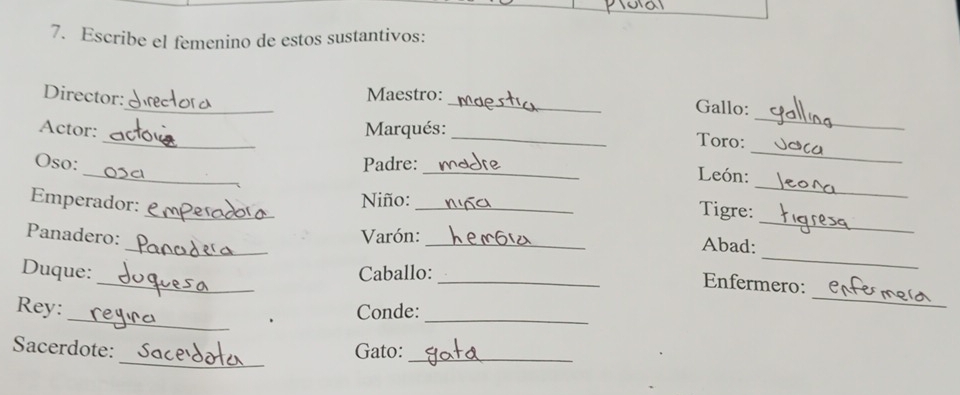 Plural
7. Escribe el femenino de estos sustantivos:
Director: directora
Actor: actoria
Oso: osa
Emperador: emperadora
Panadero: Panadera
Duque: duquesa
Rey: reyina
Sacerdote: Sacerdota
Maestro: maestra
Marqués:
Padre: madre
Niño: niña
Varón: hembra
Caballo:
Conde:
Gato: gata
Gallo: gallina
Toro: vaca
León: leona
Tigre: tigresa
Abad:
Enfermero: enfermera